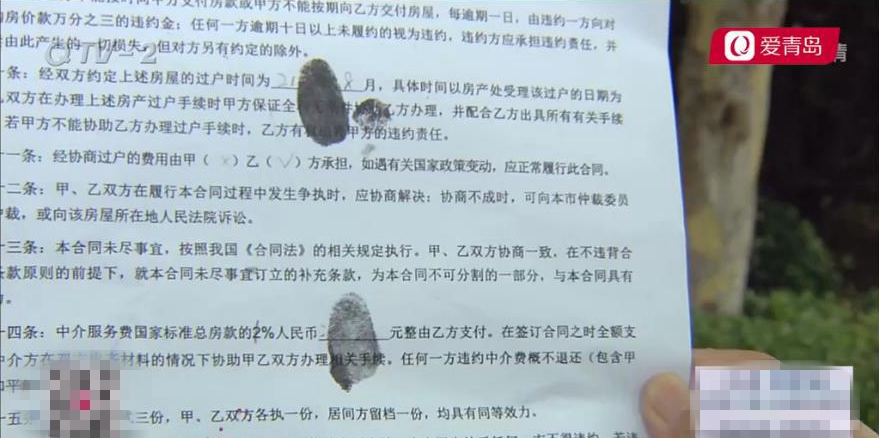 能按时向甲方支付房款或甲方不能按期向乙方交付房屋，每逾期一日，由违约一方向对
房价款万分之三的违约金；任何一方逾期十日以上未履约的视为违约，违约方应承担违约责任，并
由此产生的一切损失。但对方另有约定的除外。
QTV-2
爱青岛
条：经双方约定上述房屋的过户时间为 8 月，具体时间以房产处受理该过户的日期为
双方在办理上述房产过户手续时甲方保证全 乙方办理，并配合乙方出具所有有关手续
若甲方不能协助乙方办理过户手续时，乙方有 甲方的违约责任。
一条：经协商过户的费用由甲（×）乙（√）方承担，如遇有关国家政策变动，应正常履行此合同。
二条：甲、乙双方在履行本合同过程中发生争执时，应协商解决；协商不成时，可向本市仲裁委员
裁，或向该房屋所在地人民法院诉讼。
十三条：本合同未尽事宜，按照我国《合同法》的相关规定执行。甲、乙双方协商一致，在不违背合
条款原则的前提下，就本合同未尽事宜订立的补充条款，为本合同不可分割的一部分，与本合同具有
十四条：中介服务费国家标准总房款的2%人民币 元整由乙方支付。在签订合同之时全额支
中介方在 材料的情况下协助甲乙双方办理相关手续。任何一方违约中介费概不退还（包含甲
十五 三份，甲、乙双方各执一份，居间方留档一份，均具有同等效力。